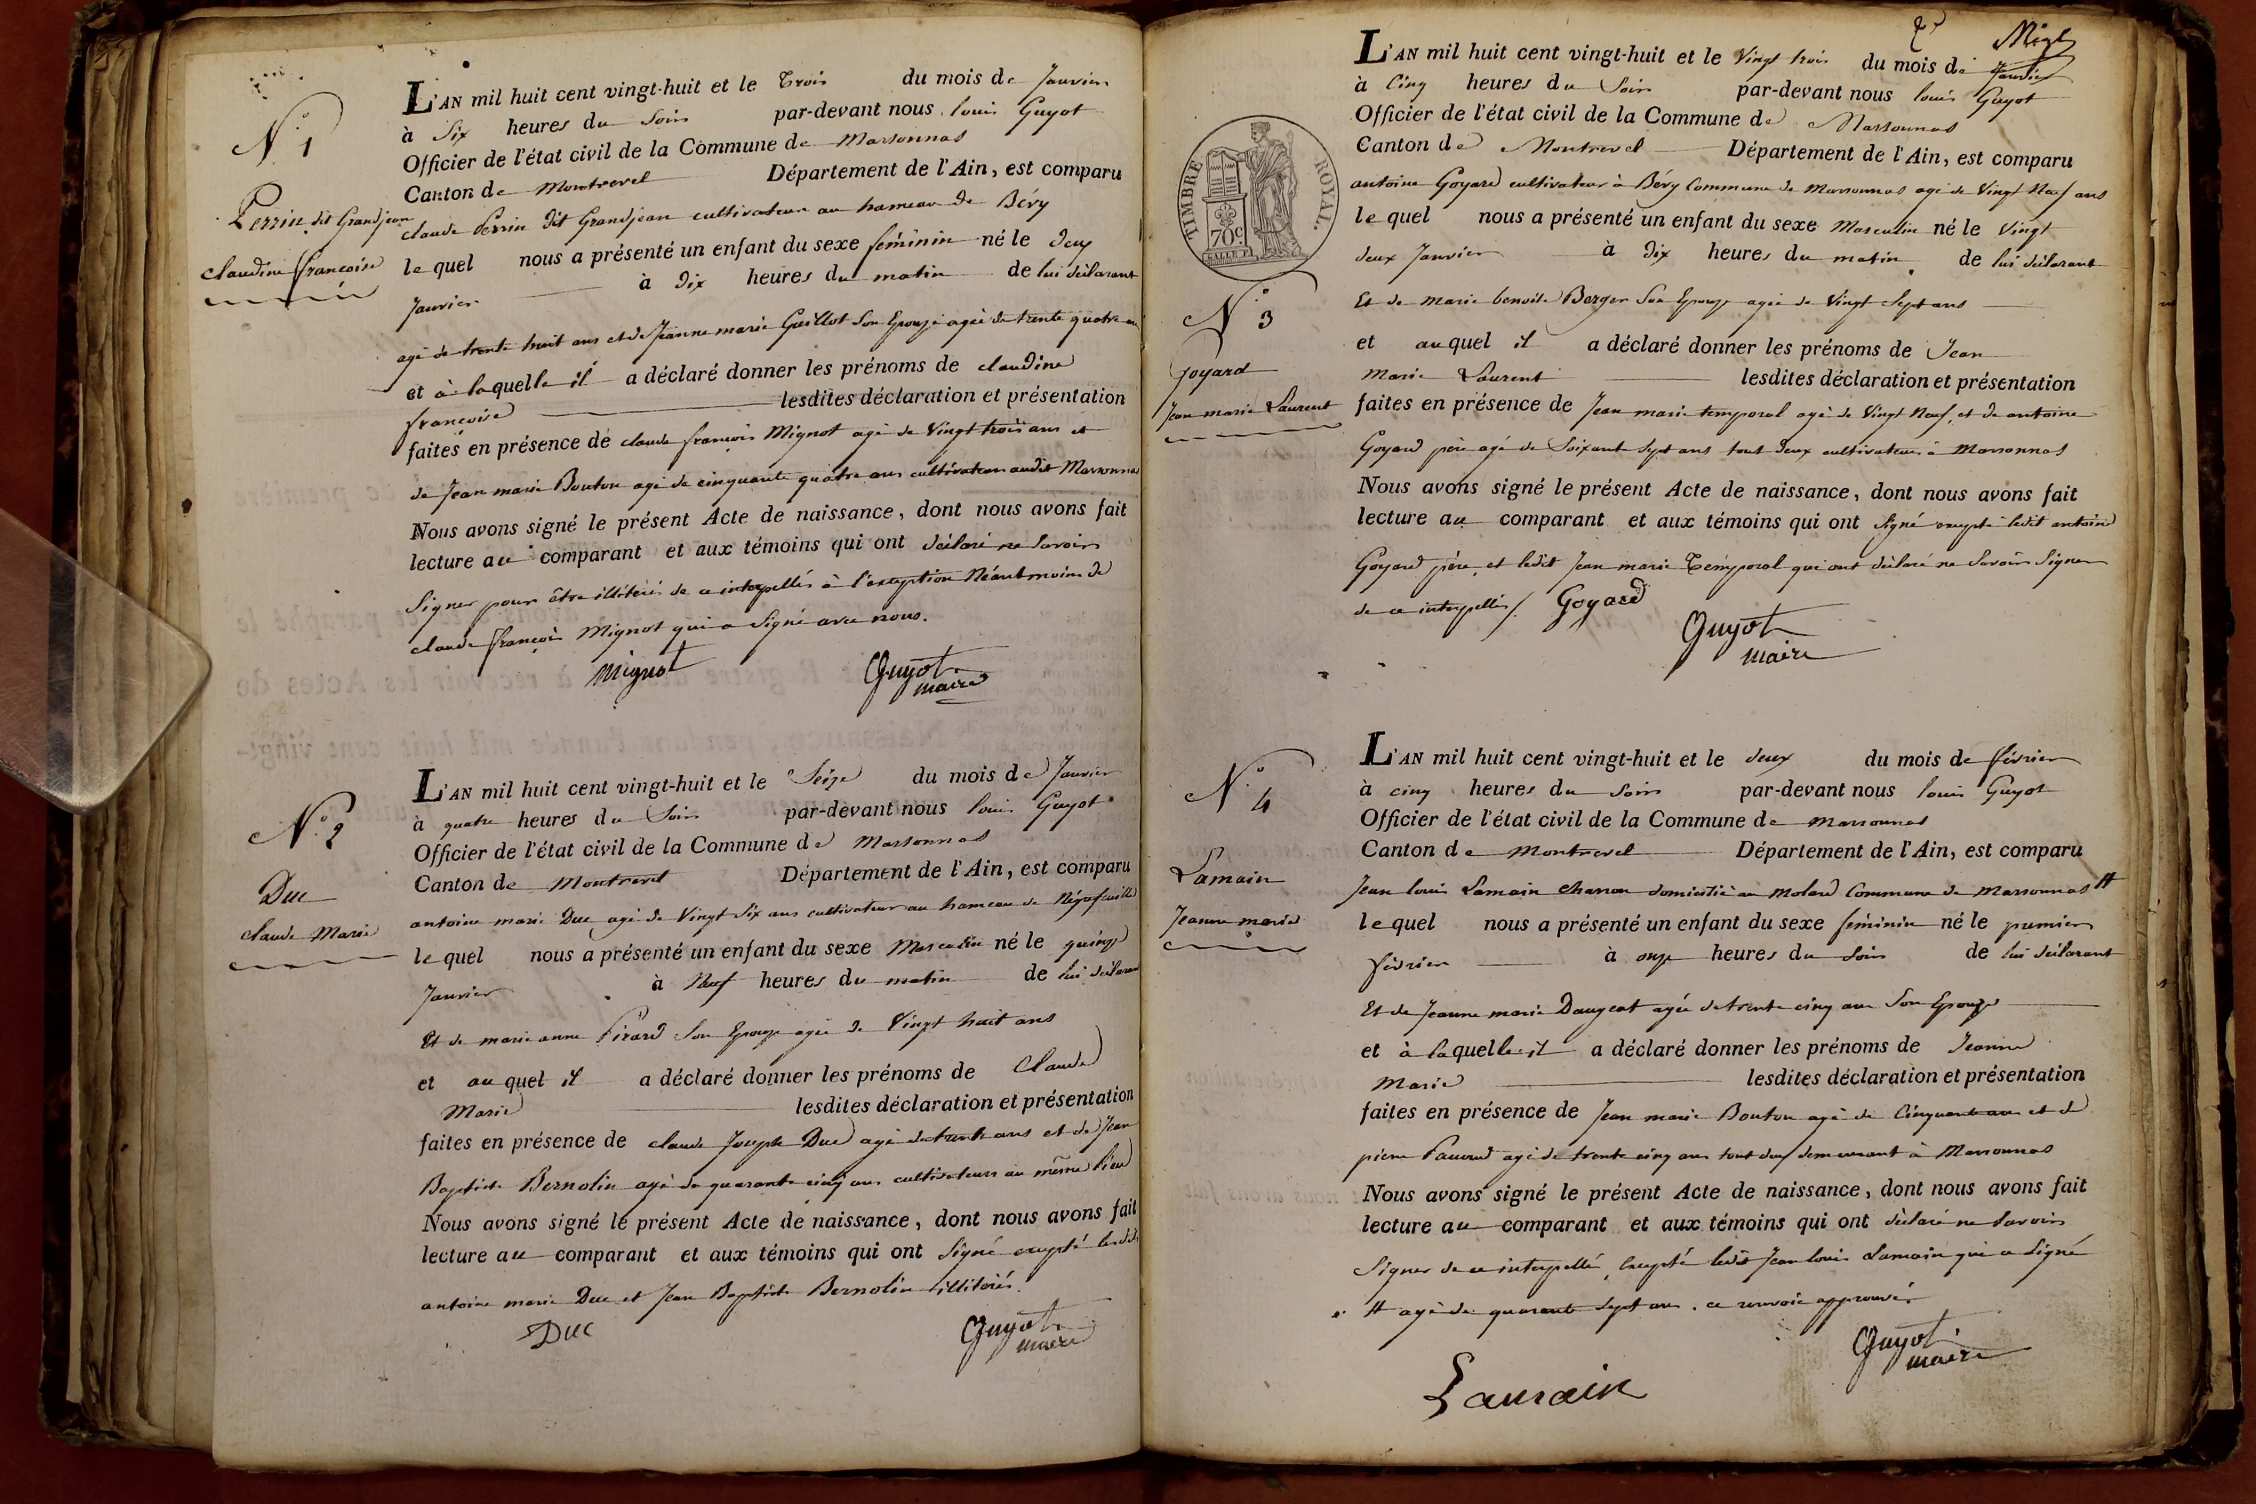 N.° 1
Perrin dit Grandjean
claudine françoise
L'AN mil huit cent vingt-huit et le Trois du mois de Janvier
à Six heures du Soir par-devant nous louis Guyot
Officier de l'état civil de la Commune de Marsonnas
Canton de Montrevel Département de l'Ain, est comparu
claude Perrin dit Grandjean cultivateur au hameau de Bévy
lequel nous a présenté un enfant du sexe féminin né le deux
Janvier à dix heures du matin de lui déclarant
agé de trente huit ans et de Jeanne marie Guillot Son Epouse agée de trente quatre ans
et à laquelle il a déclaré donner les prénoms de claudine
françoise lesdites déclaration et présentation
faites en présence de claude françois Mignot agé de Vingt trois ans et
de Jean marie Bouton agé de cinquante quatre ans cultivateur audit Marsonnas
Nous avons signé le présent Acte de naissance, dont nous avons fait
lecture au comparant et aux témoins qui ont déclaré ne Savoir
Signer pour être illitérés de ce interpellés à l'exception Néantmoins de
claude françois Mignot qui a Signé avec nous.
Mignot Guyot
maire
N.° 2
Duc
claude Marie
L'AN mil huit cent vingt-huit et le Seize du mois de Janvier
à quatre heures du Soir par-devant nous louis Guyot
Officier de l'état civil de la Commune de Marsonnas
Canton de Montrevel Département de l'Ain, est comparu
antoine marie Duc agé de Vingt Six ans cultivateur au hameau de
lequel nous a présenté un enfant du sexe Masculin né le quinze
Janvier à Neuf heures du matin de lui déclarant
Et de marie anne Pirard Son Epouse agée de Vingt huit ans
et auquel il a déclaré donner les prénoms de Claude
Marie lesdites déclaration et présentation
faites en présence de claude Joseph Duc agé de trente ans et de Jean
Baptiste Bernolin agé de quarante cinq ans cultivateurs au même lieu
Nous avons signé le présent Acte de naissance, dont nous avons fait
lecture au comparant et aux témoins qui ont Signé excepté lesdits
antoine marie Duc et Jean Baptiste Bernolin illitérés.
Duc Guyot
maire
TIMBRE ROYAL
70c
N.° 3
Goyard
Jean marie Laurent
L'AN mil huit cent vingt-huit et le Vingt trois du mois de Janvier
à Cinq heures du Soir par-devant nous louis Guyot
Officier de l'état civil de la Commune de Marsonnas
Canton de Montrevel Département de l'Ain, est comparu
antoine Goyard cultivateur à Bévy Commune de Marsonnas agé de Vingt Neuf ans
lequel nous a présenté un enfant du sexe Masculin né le Vingt
deux Janvier à Dix heures du matin de lui déclarant
Et de marie benoite Berger Son Epouse agée de Vingt Sept ans
et auquel il a déclaré donner les prénoms de Jean
Marie Laurent lesdites déclaration et présentation
faites en présence de Jean marie temporal agé de Vingt Neuf, et de antoine
Goyard père agé de Soixante Sept ans tout deux cultivateurs à Marsonnas
Nous avons signé le présent Acte de naissance, dont nous avons fait
lecture au comparant et aux témoins qui ont Signé excepté ledit antoine
Goyard père, et ledit Jean marie Témporal qui ont déclaré ne Savoir Signer
de ce interpellés. Goyard
Guyot
maire
N.° 4
Lamain
Jeanne marie
L'AN mil huit cent vingt-huit et le deux du mois de février
à cinq heures du Soir par-devant nous louis Guyot
Officier de l'état civil de la Commune de Marsonnas
Canton de Montrevel Département de l'Ain, est comparu
Jean louis Lamain charron domicilié au Molard Commune de Marsonnas #
lequel nous a présenté un enfant du sexe féminin né le premier
février à onze heures du Soir de lui déclarant
Et de Jeanne marie Daugeat agée de trente cinq ans Son Epouse
et à laquelle il a déclaré donner les prénoms de Jeanne
Marie lesdites déclaration et présentation
faites en présence de Jean marie Bouton agé de Cinquante ans et de
pierre agé de trente cinq ans tout deux demeurant à Marsonnas
Nous avons signé le présent Acte de naissance, dont nous avons fait
lecture au comparant et aux témoins qui ont déclaré ne Savoir
Signer de ce interpellé, Excepté ledit Jean louis Lamain qui a Signé
# agé de quarante Sept ans. ce renvoie approuvé.
Guyot
maire
Lamain